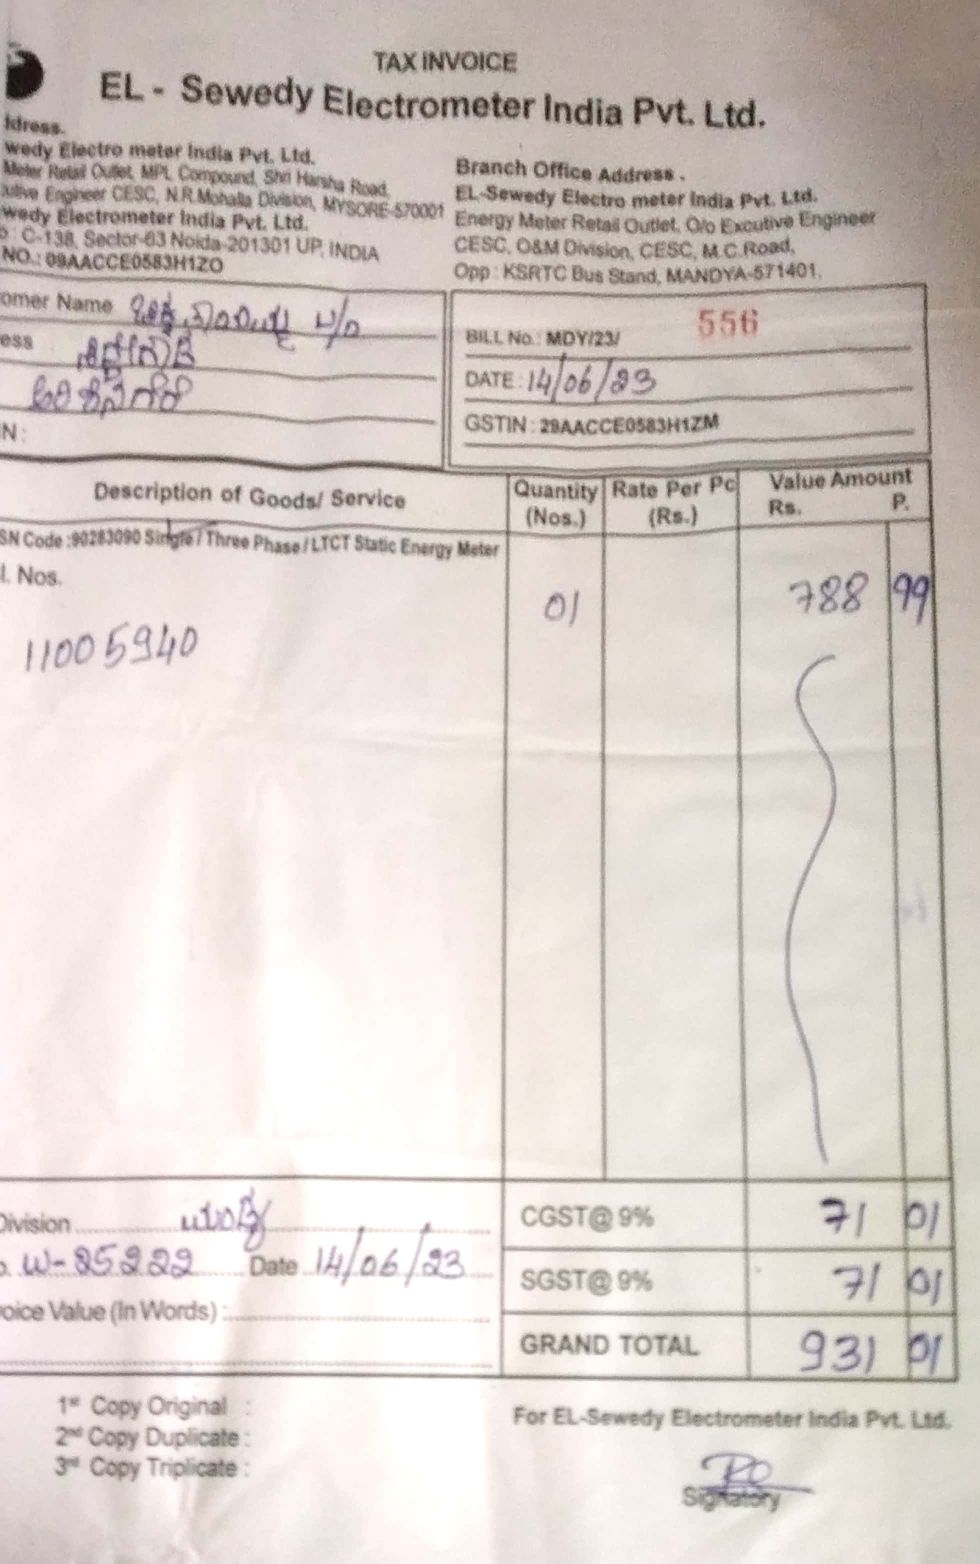 TAX INVOICE
EL - Sewedy Electrometer India Pvt. Ltd.
ldress.
wedy Electro meter India Pvt. Ltd.
Meter Retail Outlet, MPL Compound, Shri Harsha Road,
utive Engineer CESC, N.R.Mohalla Division, MYSORE-570001
wedy Electrometer India Pvt. Ltd.
: C-138, Sector-63 Noida-201301 UP, INDIA
NO.: 09AACCE0583H1ZO
Branch Office Address .
EL-Sewedy Electro meter India Pvt. Ltd.
Energy Meter Retail Outlet, O/o Excutive Engineer
CESC, O&M Division, CESC, M.C.Road,
Opp : KSRTC Bus Stand, MANDYA-571401.
omer Name
ess
N :
BILL No.: MDY/23/ 556
DATE : 14/06/23
GSTIN : 29AACCE0583H1ZM
Description of Goods/ Service Quantity (Nos.) Rate Per Pc (Rs.) Value Amount Rs. P.
SN Code :90283090 Single / Three Phase / LTCT Static Energy Meter
l. Nos.
01 788 99
11005940
Division
CGST@ 9% 71 01
o. W-25222 Date 14/06/23
SGST@ 9% 71 01
oice Value (In Words) :
GRAND TOTAL 931 01
1st Copy Original :
2nd Copy Duplicate :
3rd Copy Triplicate :
For EL-Sewedy Electrometer India Pvt. Ltd.
Signatory